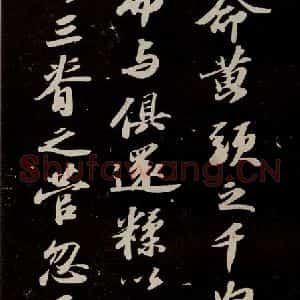 命黄頭之千
而与俱還糅以
三脊之菅忽
Shufawang.CN